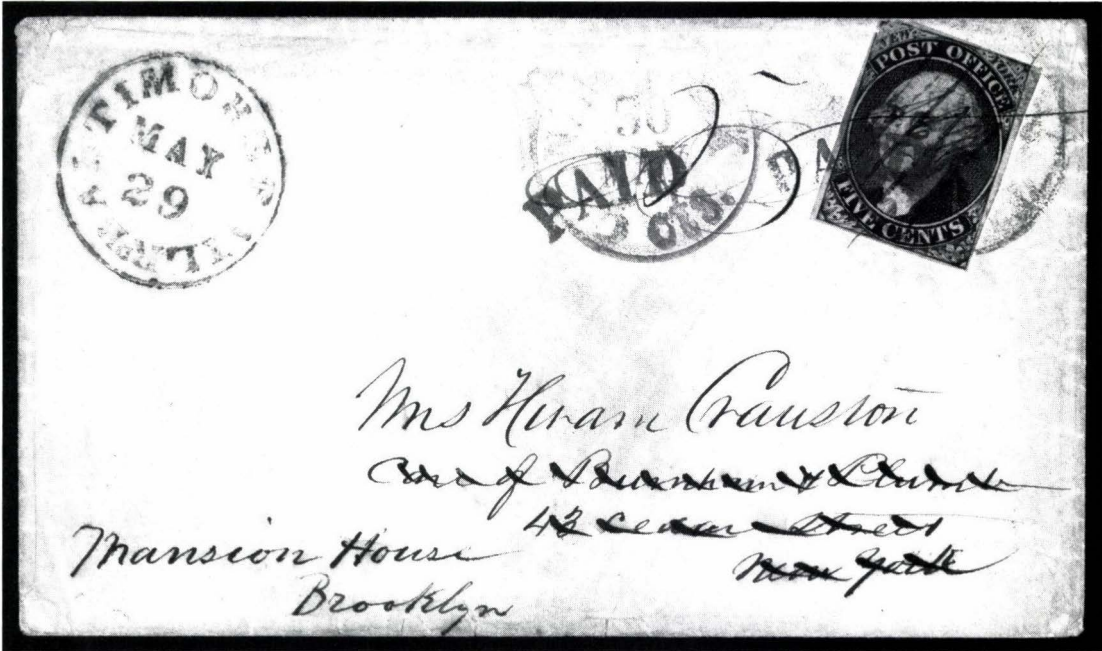 BALTIMORE RAIL R.
MAY
29
50
PAID
5 Cts.
PA
NEW YORK
POST OFFICE
FIVE CENTS
Mrs Hiram Cranston
Care of Burnham &
43 Cedar Street
New York
Mansion House
Brooklyn